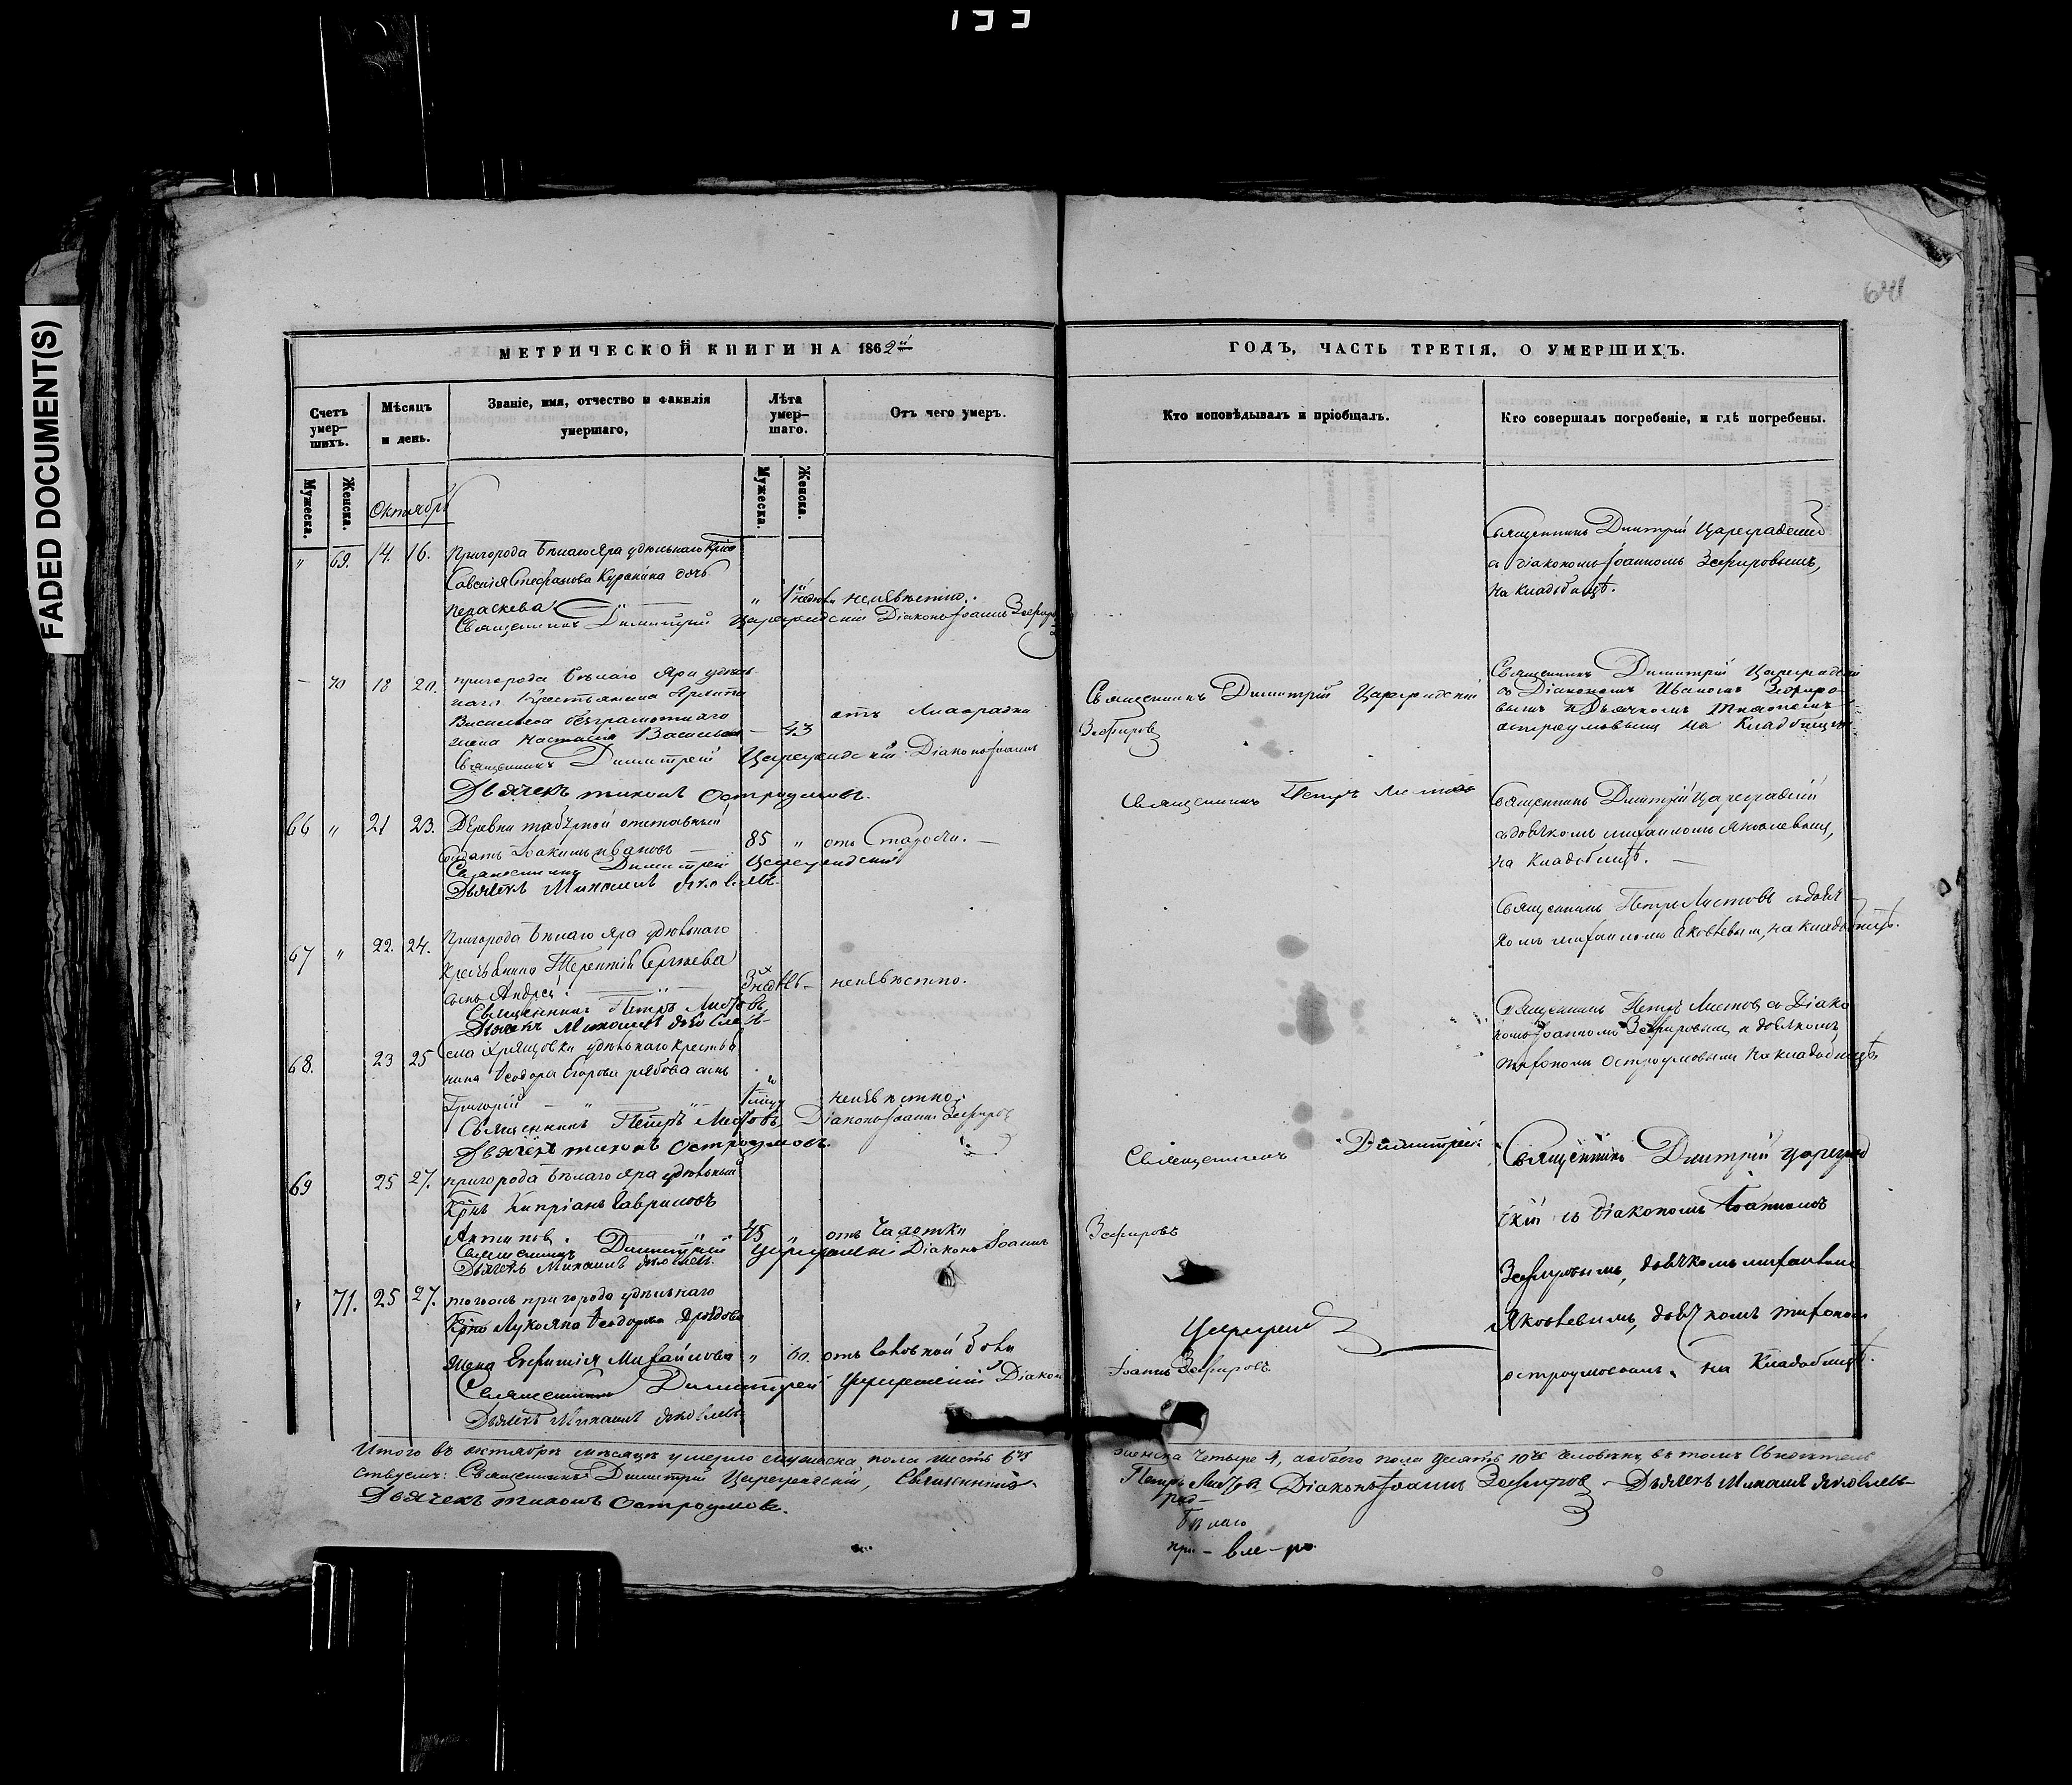 133
641
FADED DOCUMENT(S)
МЕТРИЧЕСКОЙ КНИГИ НА 1862й
ГОДЪ, ЧАСТЬ ТРЕТІЯ, О УМЕРШИХЪ.
Счетъ умер-шихъ.
Мѣсяцъ и день.
Званіе, имя, отчество и фамилія умершаго,
Лѣта умер-шаго.
Отъ чего умеръ.
Кто исповѣдывалъ и пріобщалъ.
Кто совершалъ погребеніе, и гдѣ погребены.
Мужеска.
Женска.
Октябрь
Мужеска.
Женска.
" 69. 14. 16. Пригорода Бѣлаго Яра удѣльнаго Крно
Савелія Стефанова Куракина дочь
Параскева " неизвѣстно.
Священникъ Димитрій Цареградскій Діаконъ Іоаннъ Зефировъ
Священникъ Дмитрій Цареградскій
съ діакономъ Іоанномъ Зефировымъ,
на кладбищѣ.
— 70 18 20. пригорода Бѣлаго Яра удѣль
наго Крестьянина
Васильева безграмотнаго
жена Настасья Васильева — 43 отъ Лихорадки
Священникъ Димитрій Цареградскій Діаконъ Іоаннъ
Дьячекъ Тихонъ Остроумовъ.
Священникъ Димитрій Цареградскій
Зефировъ
Священникъ Димитрій Цареградскій
съ Діакономъ Иваномъ Зефиро-
вымъ и Дьячкомъ Тихономъ
Остроумовымъ на Кладбищѣ.
66 " 21 23. Деревни отставный
Солдатъ Іоакимъ Ивановъ — 85 " отъ Старости. —
Священникъ Димитрій Цареградскій
Дьячекъ Михаилъ Яковлевъ.
Священникъ Петръ Листовъ
Священникъ Дмитрій Цареградскій
съ дьячкомъ Михаиломъ Яковлевымъ,
на кладбищѣ. —
67 " 22. 24. Пригорода Бѣлаго Яра удѣльнаго
Крестьянина Терентія Сергѣева
сынъ Андрей. 3х недѣль — неизвѣстно.
Священникъ Петръ Листовъ
Дьячекъ Михаилъ Яковлевъ
Священникъ Петръ Листовъ съ дьяч
комъ Михаиломъ Яковлевымъ, на кладбищѣ.
68. 23 25 Села Хрящовки удѣльнаго Крестья
нина Ѳеодора Егорова Рябова сынъ
Григорій — " — неизвѣстно.
Священникъ Петръ Листовъ, Діаконъ Іоаннъ Зефировъ
Дьячекъ Тихонъ Остроумовъ.
Священникъ Петръ Листовъ съ Діако
номъ Іоанномъ Зефировымъ и дьячкомъ,
Тихономъ Остроумовымъ на кладбищѣ.
69 25 27. пригорода Бѣлаго Яра удѣльный
Крнъ Кипріанъ Гавриловъ
Антипов. 45 " отъ Чахотки
Священникъ Димитрій Цареградскій Діаконъ Іоаннъ
Дьячекъ Михаилъ Яковлевъ.
Священникъ Димитрій
Зефировъ
Священникъ Дмитрій Цареград
скій съ діакономъ Іоанномъ
Зефировымъ, дьячкомъ Михаиломъ
Яковлевымъ, дьячкомъ Тихономъ
Остроумовымъ. на Кладбищѣ.
" 71. 25 27. тогожъ пригорода удѣльнаго
Крно Лукояна Ѳеодорова Дроздова
жена Евфимія Михайлова " 60. отъ головной боли
Священникъ Димитрій Цареградскій Діакон
Дьячекъ Михаилъ Яковлевъ.
Цареград
Іоаннъ Зефировъ.
Итого въ октябрѣ мѣсяцѣ умерло мужеска пола шесть 6ть
женска четыре 4, обоего пола десять 10ть человѣкъ, въ томъ Свидѣтель
ствуемъ: Священникъ Димитрій Цареградскій, Священникъ
Петръ Листовъ Діаконъ Іоаннъ Зефировъ Дьячекъ Михаилъ Яковлевъ
Дьячекъ Тихонъ Остроумовъ.